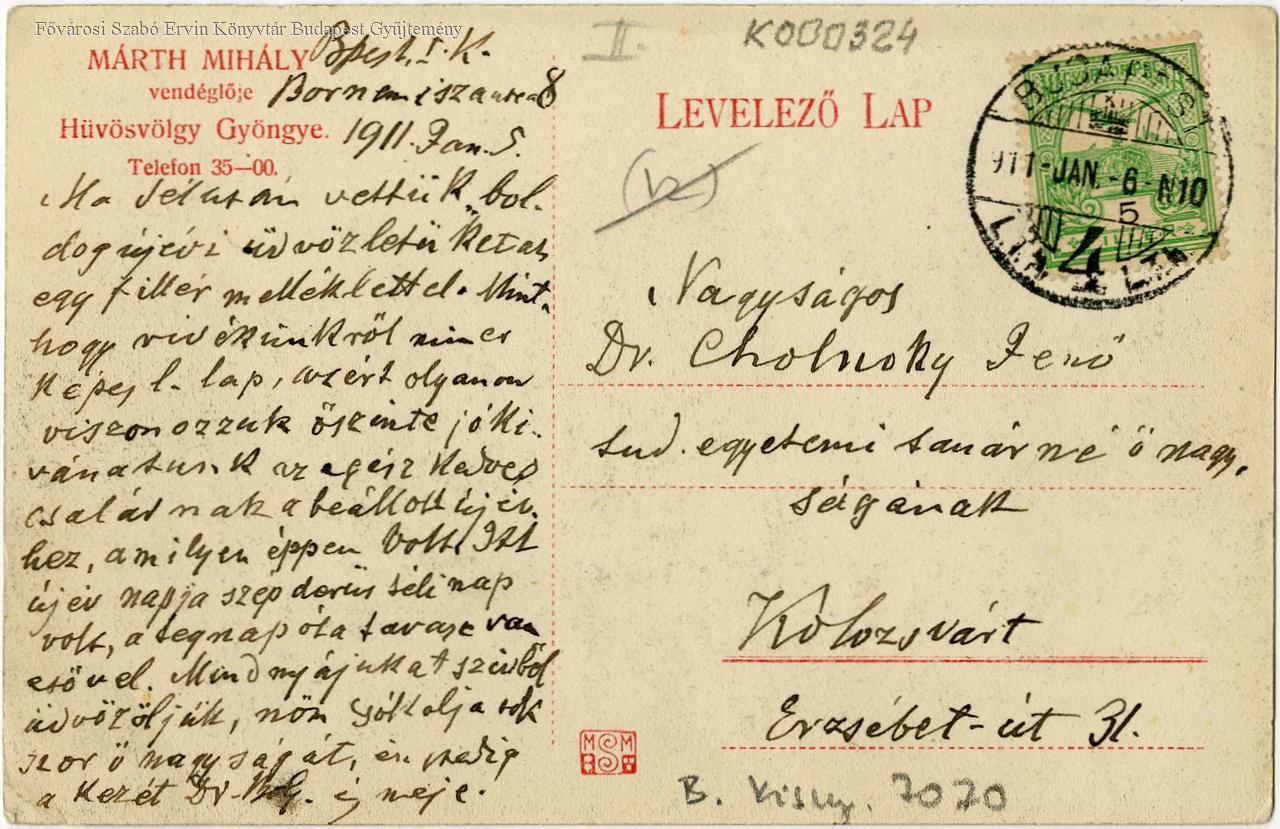 Fővárosi Szabó Ervin Könyvtár Budapest Gyűjtemény
MÁRTH MIHÁLY
vendéglője
Hüvösvölgy Gyöngye.
Telefon 35—00.
Bpest, I. K.
Bornemisza utca 8
1911. Jan. 5.
Ma délután vettük „bol-
dog újévi üdvözletüket as
egy fillér melléklettel. Mint-
hogy vidékünkről nincs
képes l. lap, azért olyanon
viszonozzuk őszinte jóki-
vánatunk az egész kedves
családnak a beállott újév-
hez, amilyen éppen volt. Itt
újév napja szép derűs téli nap
volt, a tegnap óta tavasz van
esővel. Mindnyájukat szivből
üdvözöljük, nőm csókolja sok
szor ő nagyságát, én pedig
a kezét Dr. és neje.
II.
K000324
LEVELEZŐ LAP
(12)
BUDAPEST
911-JAN.-6-N10
5
4
Nagyságos
Dr. Cholnoky Jenő
tud. egyetemi tanárné ő nagy-
ságának
Kolozsvárt
Erzsébet-út 31.
MSM
B. Kisgy. 7070